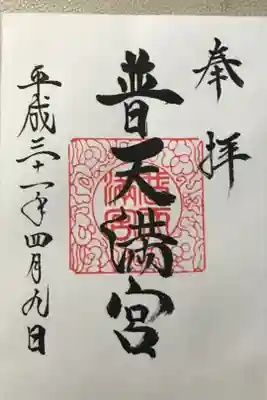 奉拝
普天満宮
普天満宮
平成三十一年四月九日